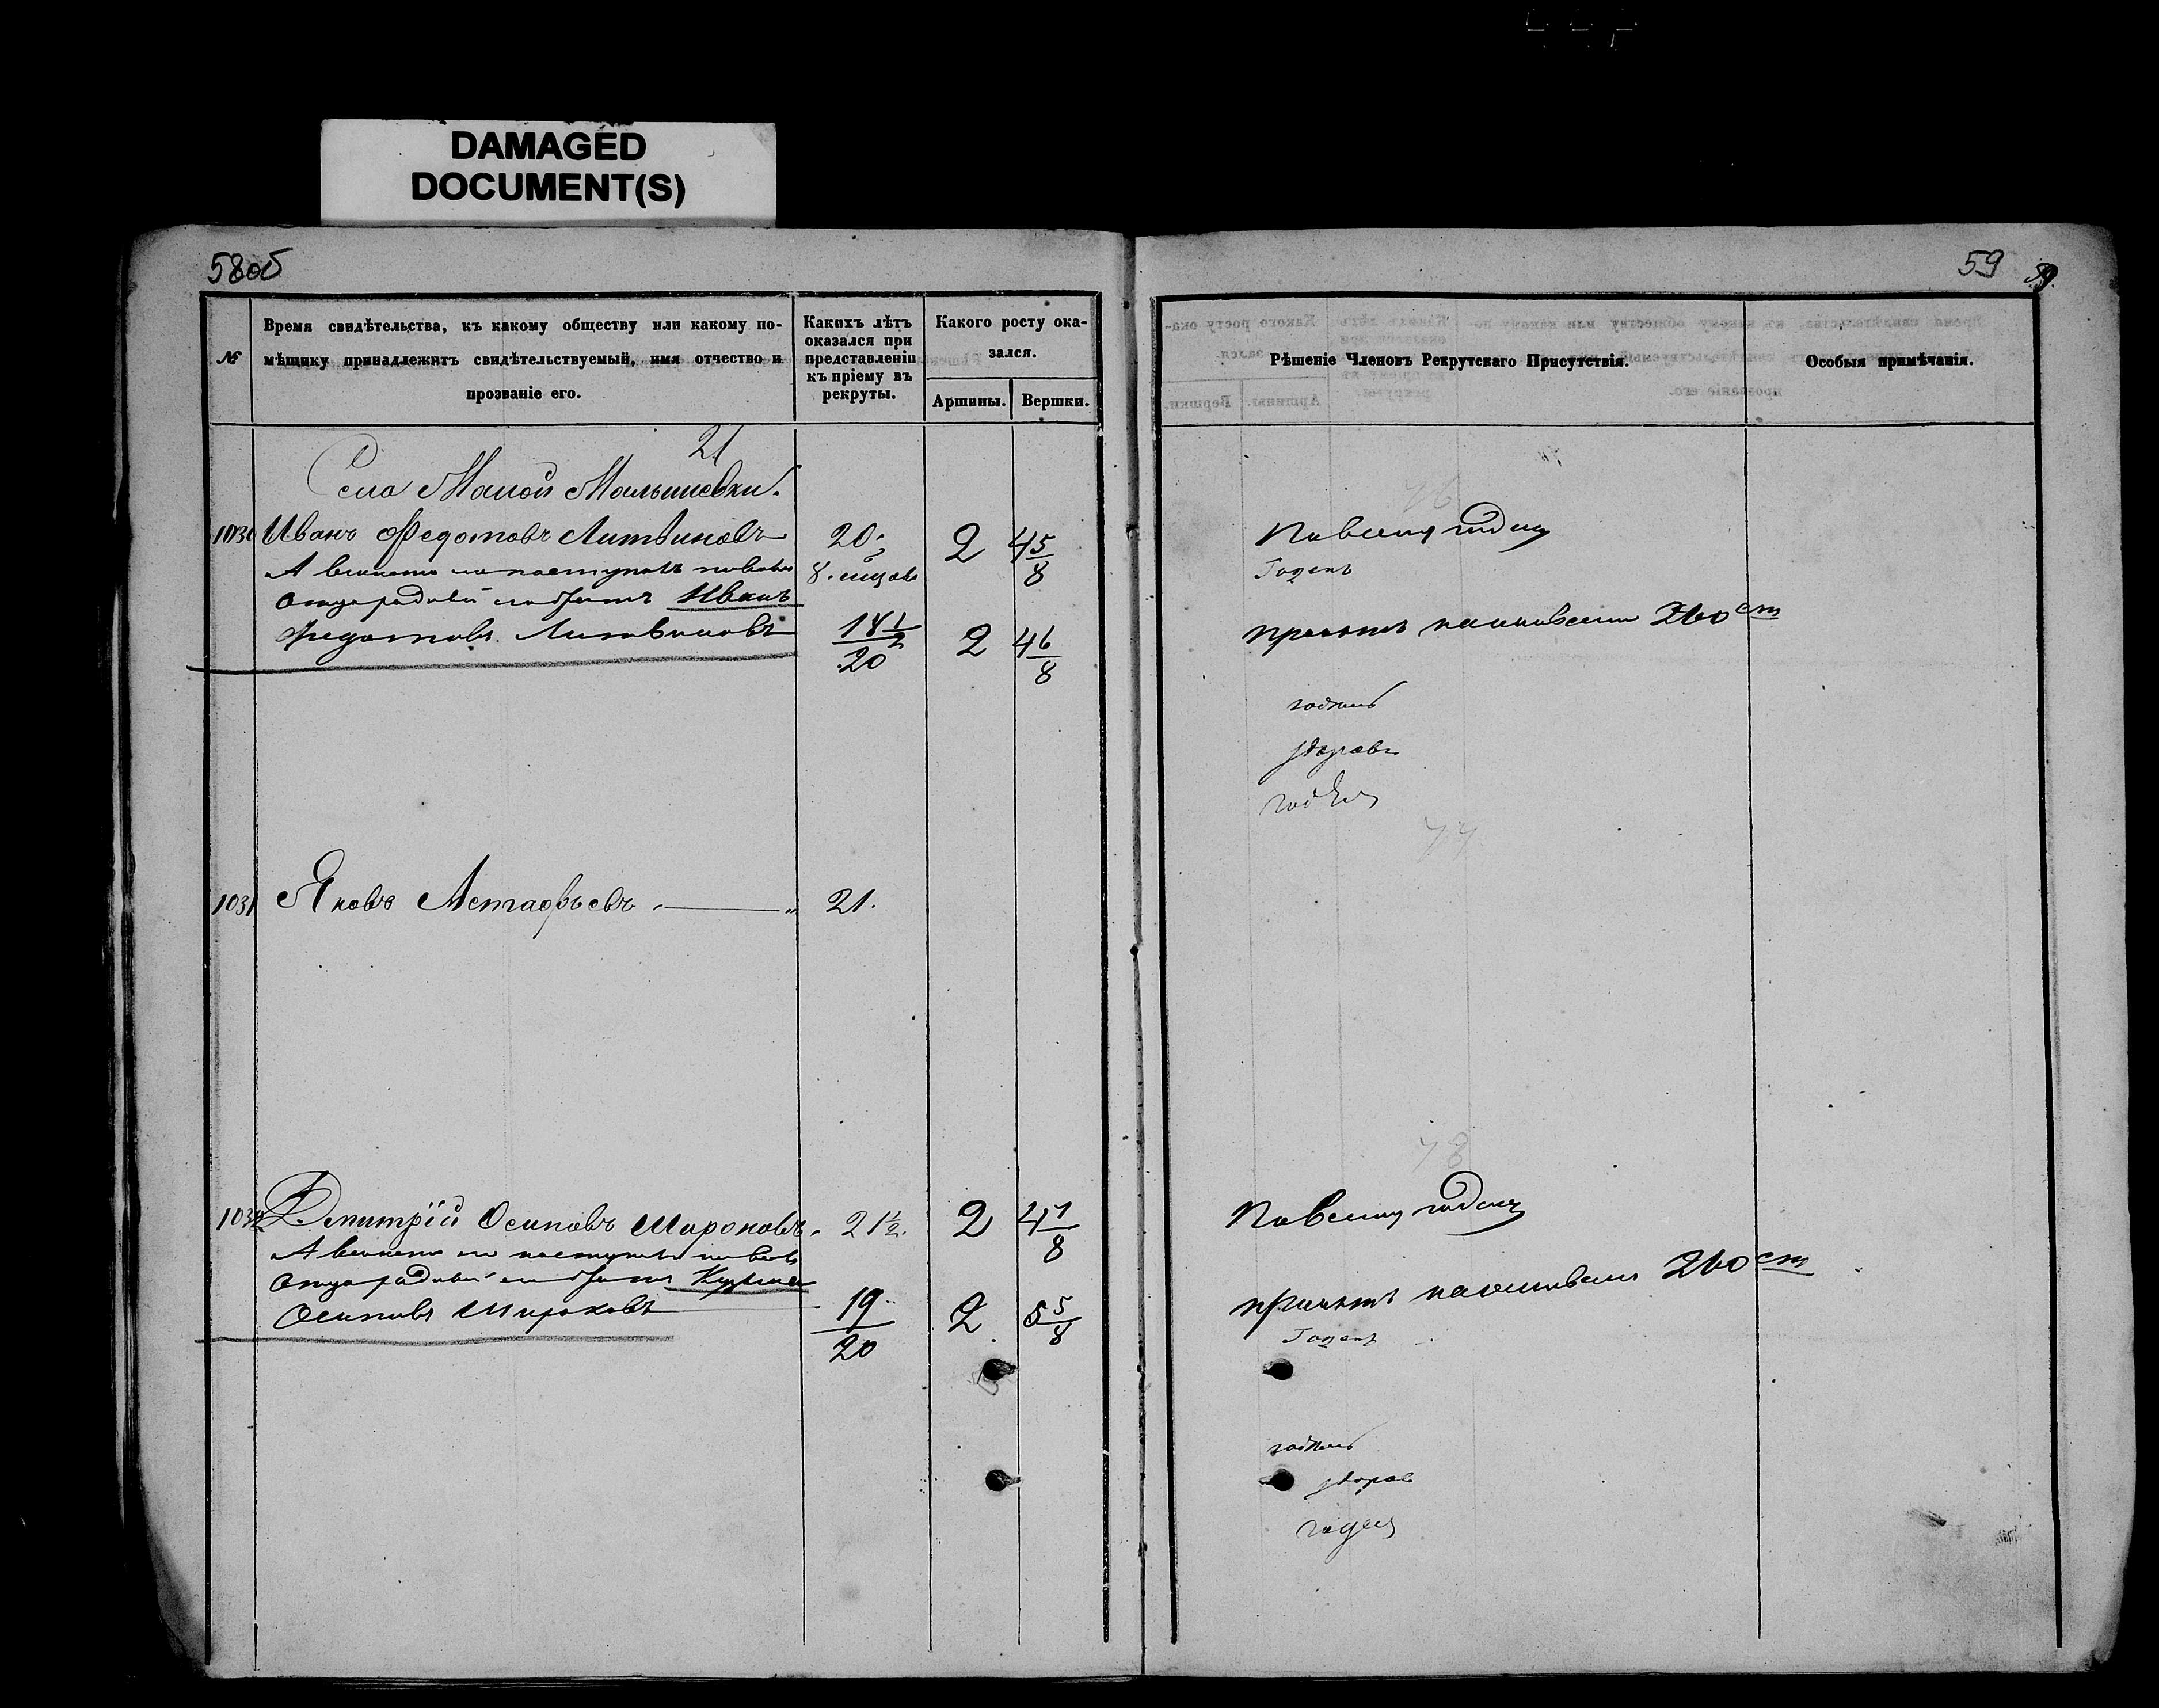 DAMAGED
DOCUMENT(S)
58об
59
59.
№
Время свидѣтельства, къ какому обществу или какому по-
мѣщику принадлежитъ свидѣтельствуемый, имя отчество и
прозваніе его.
Какихъ лѣтъ
оказался при
представленіи
къ пріему въ
рекруты.
Какого росту ока-
зался.
Аршины.
Вершки.
Рѣшеніе Членовъ Рекрутскаго Присутствія.
Особыя примѣчанія.
21
Села Малой Малышевки.
76
1030 Иванъ Федотовъ Литвиновъ 20. 2 4 5/8
А вмѣсто его поступилъ
8.
отца родный братъ Иванъ
Федотовъ Литвиновъ 18 1/2 / 20 2 4 6/8
По всему годенъ
Годенъ
принятъ 260 ст
годенъ
здоровъ
годенъ
77
1031 Яковъ Астафьевъ 21.
78
1032 Дмитрій Осиповъ Широковъ 21 1/2. 2 4 1/8
А вмѣсто его поступилъ
отца родный братъ Кузьма
Осиповъ Широковъ 19/20 2 5 5/8
По всему годенъ
принятъ 260 ст
Годенъ
годенъ
здоров
годенъ